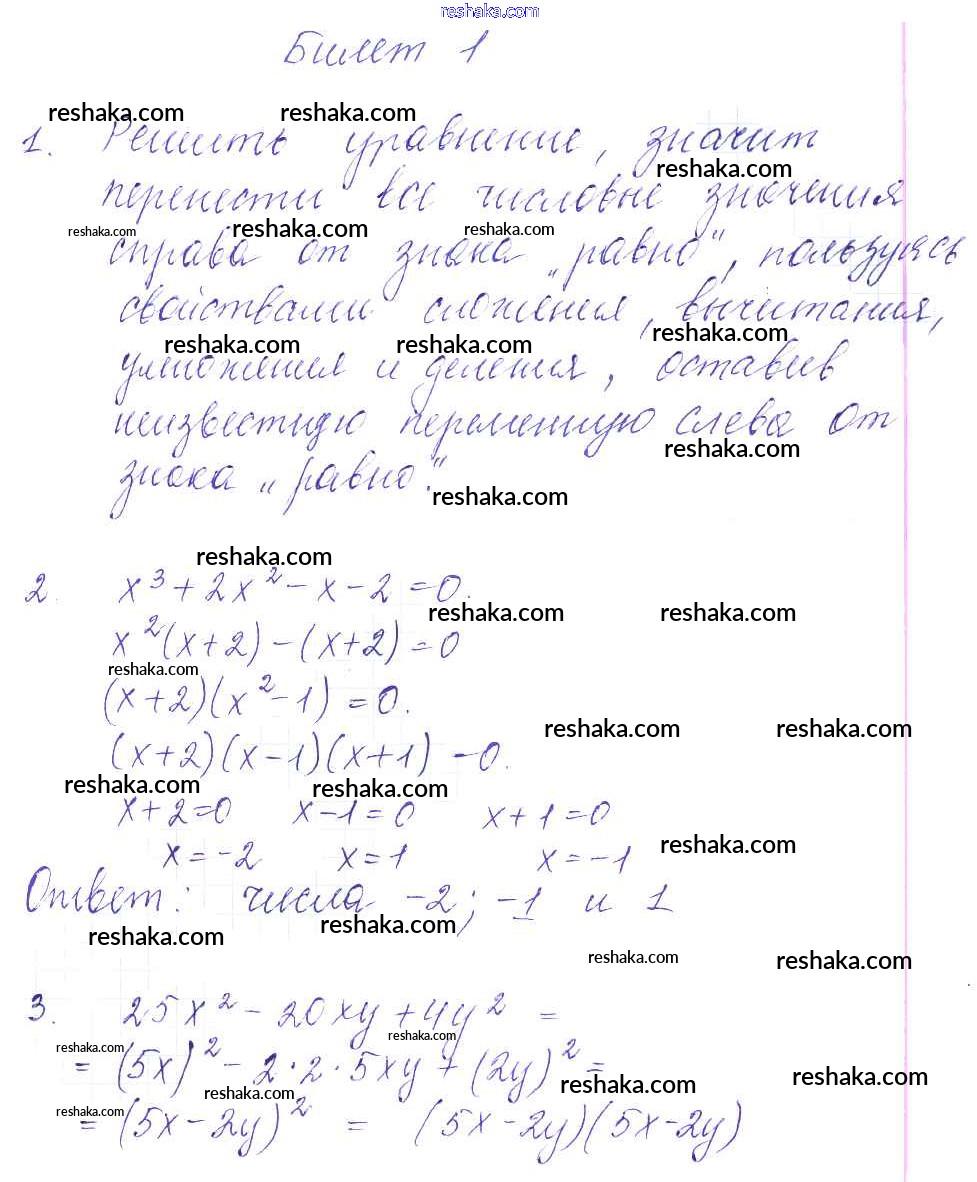 reshaka.com
Билет 1
reshaka.com reshaka.com
1. Решить уравнение, значит
reshaka.com
перенести все числовые значения
reshaka.com reshaka.com reshaka.com
справа от знака „равно", пользуясь
свойствами сложения, вычитания,
reshaka.com reshaka.com reshaka.com
умножения и деления, оставив
неизвестную переменную слева от
reshaka.com
знака „равно".
reshaka.com
reshaka.com
2. x³ + 2x² - x - 2 = 0.
reshaka.com reshaka.com
x²(x+2) - (x+2) = 0
reshaka.com
(x+2)(x²-1) = 0.
reshaka.com reshaka.com
(x+2)(x-1)(x+1) = 0.
reshaka.com reshaka.com
x+2=0 x-1=0 x+1=0
reshaka.com
x=-2 x=1 x=-1
Ответ: числа -2; -1 и 1
reshaka.com reshaka.com
reshaka.com reshaka.com
3. 25x² - 20xy + 4y² =
reshaka.com reshaka.com
= (5x)² - 2·2·5xy + (2y)² =
reshaka.com reshaka.com reshaka.com
reshaka.com
= (5x-2y)² = (5x-2y)(5x-2y)